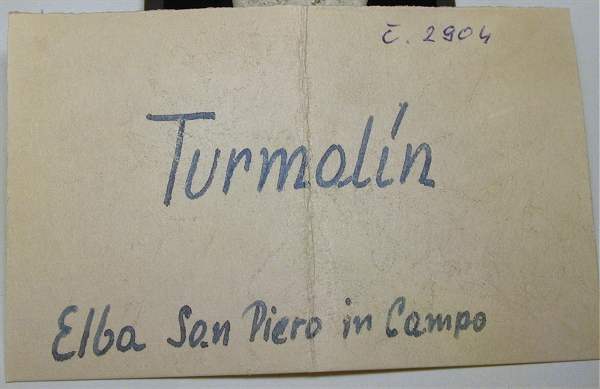 č. 2904
Turmolín
Elba San Piero in Campo